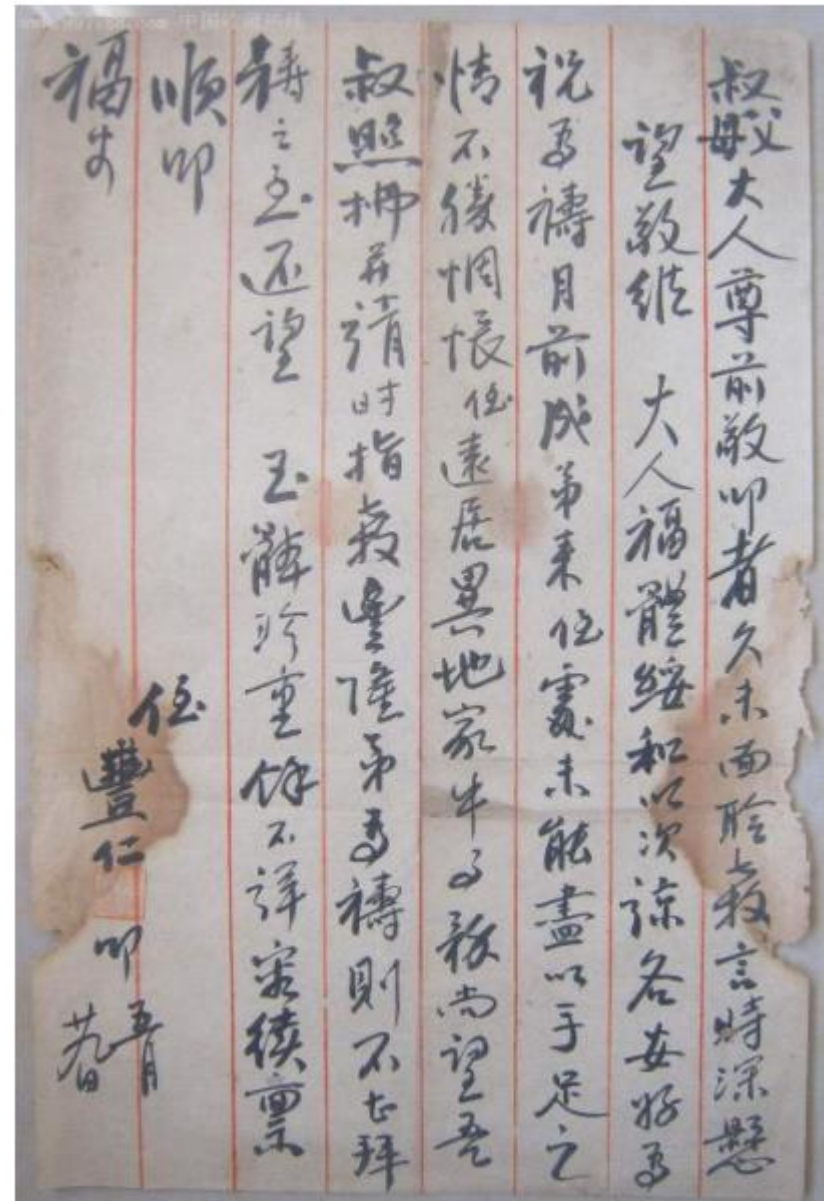 叔父母大人尊前敬叩者久未面聆教言時深懸
望敬維 大人福體綏和以次諒各安好為
祝為禱月前成弟來侄處未能盡以手足之
情不勝惆悵侄遠居異地家中事務尚望吾
叔照拂並請時指教豐隆弟為禱則不甚拜
禱之至還望 玉體珍重餘不詳容續稟
順叩
福安
侄豐仁叩 五月廿九日